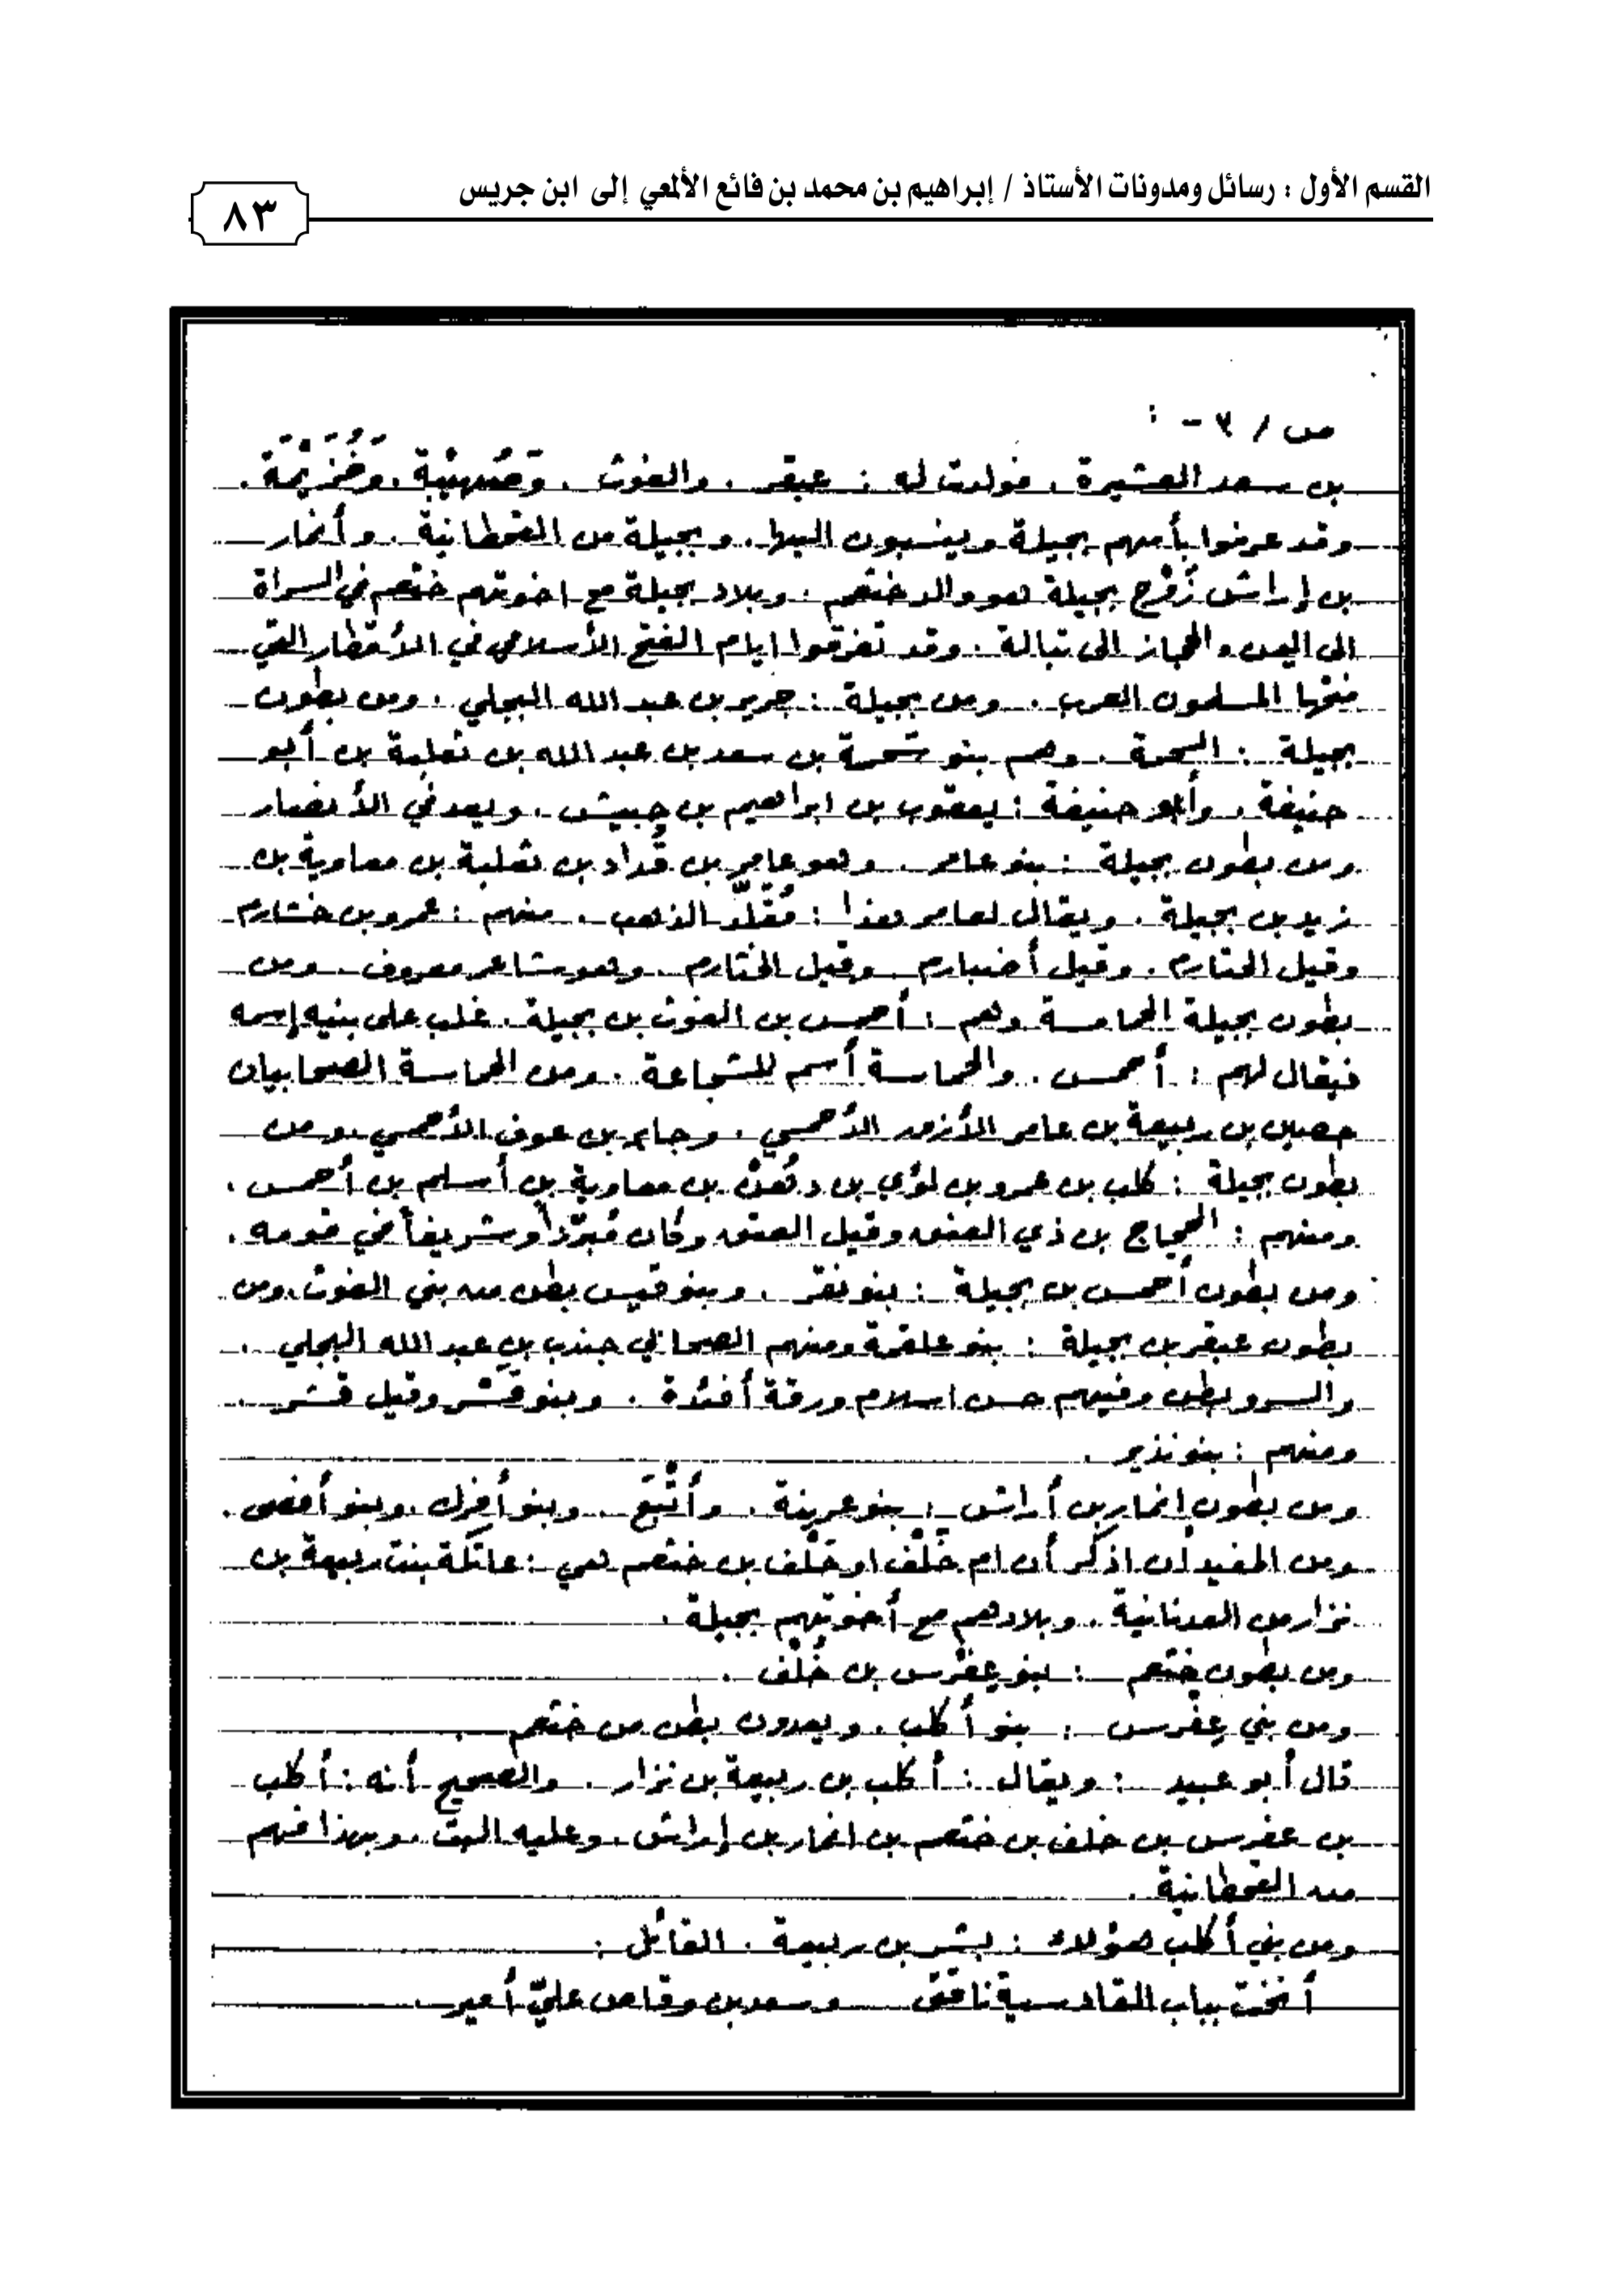 القسم الأول : رسائل ومدونات الأستاذ / إبراهيم بن محمد بن فائع الألمعي إلى ابن جريس
٨٣
ص / ٧ - :
بن سعد العشيرة . فولدت له : عبقر . والغوث . وَصُهيْبَة . وَخُزَيْمَة .
وقد عرفوا بأمهم بجيلة وينسبون اليها . وبجيلة من القحطانية . وأنمار
بن إراش زَوْج بجيلة هو والد خثعم . وبلاد بجيلة مع اخوتهم خثعم في السراة
الى اليمن والحجاز الى تبالة . وقد تفرقوا ايام الفتح الأسلامي في الأقطار التي
فتحها المسلمون العرب . ومن بجيلة : جرير بن عبد الله البجلي . ومن بطون
بجيلة : السحمة . وهم بنو سحمة بن سعد بن عبد الله بن ثعلبة بن أبو
حنيفة . وأبو حنيفة : يعقوب بن ابراهيم بن حبيش . ويعد في الأنصار
ومن بطون بجيلة : بنو عامر . وهو عامر بن قُداد بن ثعلبة بن معاوية بن
زيد بن بجيلة . ويقال لعامر هذا : مُقلّد الذهب . منهم : عمرو بن خثارم
وقيل الحثارم . وقيل أخبارم . وقيل الخثارم . وهو شاعر معروف . ومن
بطون بجيلة الحماسة وهم : أحمس بن الغوث بن بجيلة . غلب على بنيه إسمه
فيقال لهم : أحمس . والحماسة أسم للشجاعة . ومن الحماسة الصحابيان
حصين بن ربيعة بن عامر الأزور الأحمسي . وجابر بن عوف الأحمسي . ومن
بطون بجيلة : كلب بن عمرو بن لؤي بن دُهنْ بن معاوية بن أسلم بن أحمس .
ومنهم : الحجاج بن ذي العنق وقيل العتق وكان مُبرّداً وشريفاً في قومه .
ومن بطون أحمس بن بجيلة : بنو نفر . وبنو قيس بطن من بني الغوث . ومن
بطون عبقر بن بجيلة : بنو علقمة ومنهم الصحابي جندب بن عبد الله البجلي .
والسرو بطن وفيهم حسن اسلام ورقة أفئدة . وبنو قَسْر وقيل قشر .
ومنهم : بنو نذير .
ومن بطون انمار بن أراش : بنو عرينة . وأتْبَع . وبنو أفزك . وبنو أفصى .
ومن المفيد أن اذكر أن ام خَلْف او حَلْف بن خثعم هي : عاتكة بنت ربيعة بن
نزار من العدنانية . وبلادهم مع أخوتهم بجيلة .
ومن بطون خثعم : بنو عِفْرس بن خُلْف .
ومن بني عِفْرس : بنو أكلب . ويعدون بطن من خثعم .
قال أبو عبيد : ويقال : أكلب بن ربيعة بن نزار . والصحيح أنه : أكلب
بن عفرس بن خلف بن خثعم بن انمار بن إراش . وعليه البت . وبهذا فهم
من القحطانية .
ومن بني أكلب هؤلاء : بشر بن ربيعة . القائل :
أنخت بباب القادسية ناقتي وسعد بن وقاص عليّ أمير